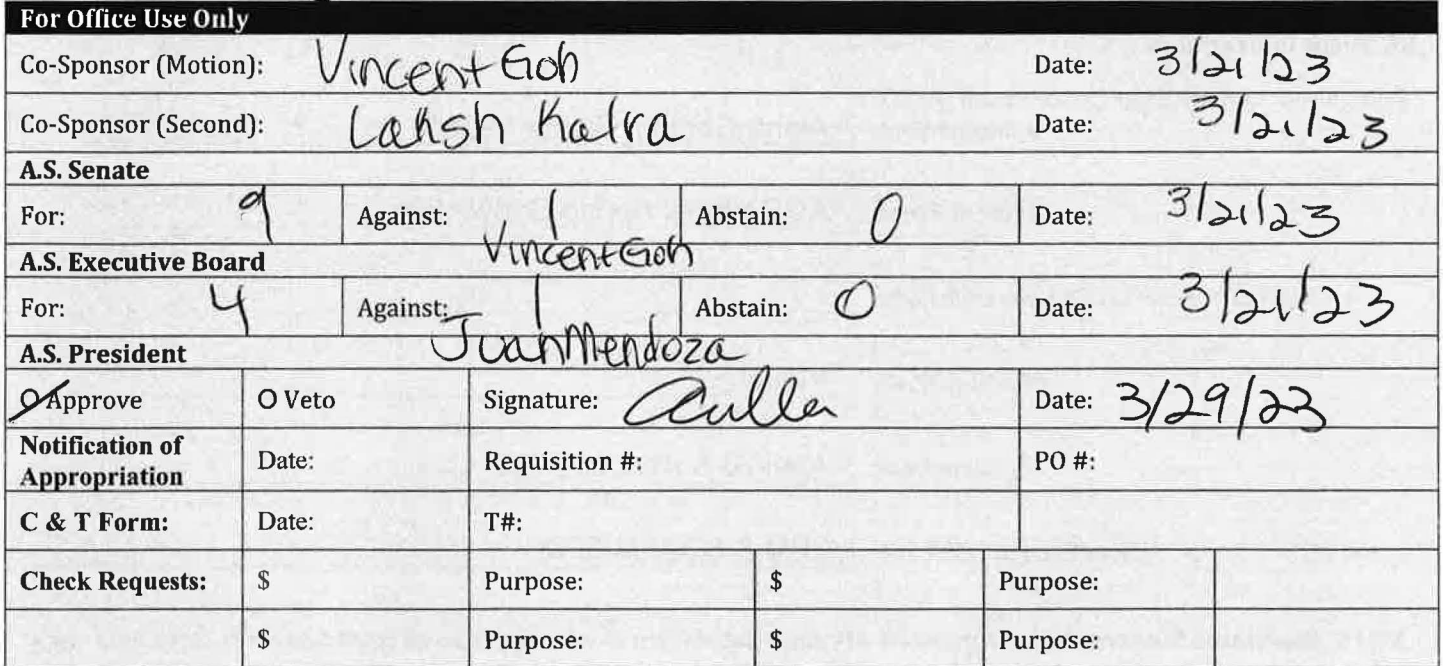 For Office Use Only
Co-Sponsor (Motion): Vincent Goh Date: 3/21/23
Co-Sponsor (Second): Lalish Kalra Date: 3/21/23
A.S. Senate
For: 9 Against: 1 Abstain: 0 Date: 3/21/23
Vincent Goh
A.S. Executive Board
For: 4 Against: 1 Abstain: 0 Date: 3/21/23
Juan Mendoza
A.S. President
O Approve O Veto Signature: Date: 3/29/23
Notification of
Appropriation Date: Requisition #: PO #:
C & T Form: Date: T#:
Check Requests: $ Purpose: $ Purpose:
$ Purpose: $ Purpose: